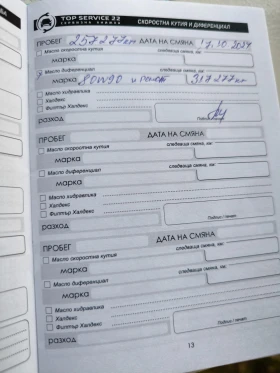 TOP SERVICE 22
СКОРОСТНА КУТИЯ И ДИФЕРЕНЦИАЛ
ПРОБЕГ 257277 км ДАТА НА СМЯНА 17.10 2024
Масло скоростна кутия следваща смяна, км:
марка
Масло диференциал следваща смяна, км:
марка 80W90 и ремонт 317277 км
Масло хидравлика
Халдекс
Филтър Халдекс
разход Подпис / печат:
ПРОБЕГ ДАТА НА СМЯНА
Масло скоростна кутия следваща смяна, км:
марка
Масло диференциал следваща смяна, км:
марка
Масло хидравлика
Халдекс
Филтър Халдекс
разход Подпис / печат:
ПРОБЕГ ДАТА НА СМЯНА
Масло скоростна кутия следваща смяна, км:
марка
Масло диференциал следваща смяна, км:
марка
Масло хидравлика
Халдекс
Филтър Халдекс
разход Подпис / печат:
13